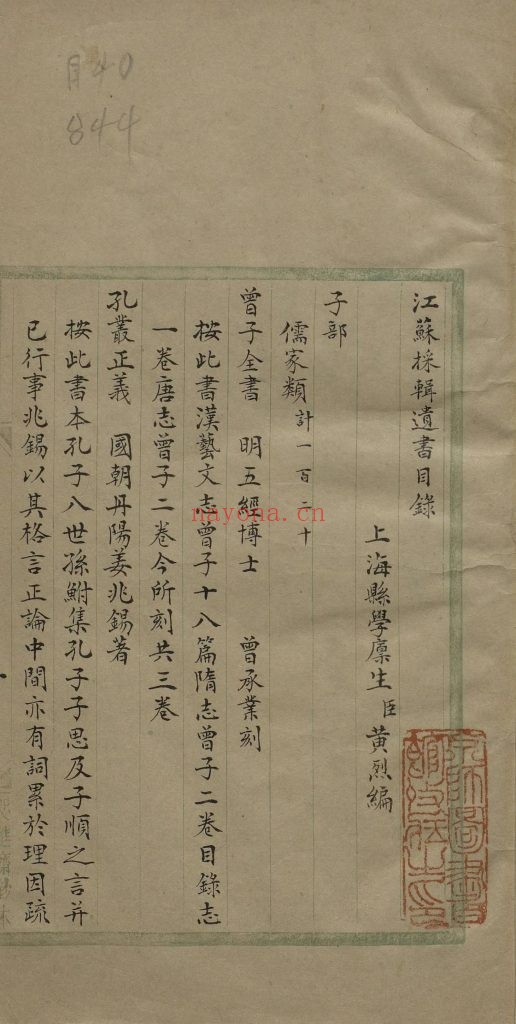 目40
844
江蘇採輯遺書目錄
上海縣學廩生臣黃烈編
子部
儒家類計一百二十
曾子全書 明五經博士 曾承業刻
按此書漢藝文志曾子十八篇隋志曾子二卷目錄志
一卷唐志曾子二卷今所刻共三卷
孔叢正義 國朝丹陽姜兆錫著
按此書本孔子八世孫鮒集孔子子思及子順之言并
已行事兆錫以其格言正論中間亦有詞累於理因疏
京師圖書館收藏之印
nayona.cn